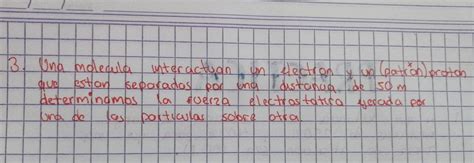 3. Una molecula interactuan un electron y un (patrón) proton
que estan separados por una distancia de 50 m
determinamos la fuerza electrostatica gerada por
una de las particulas sobre otra